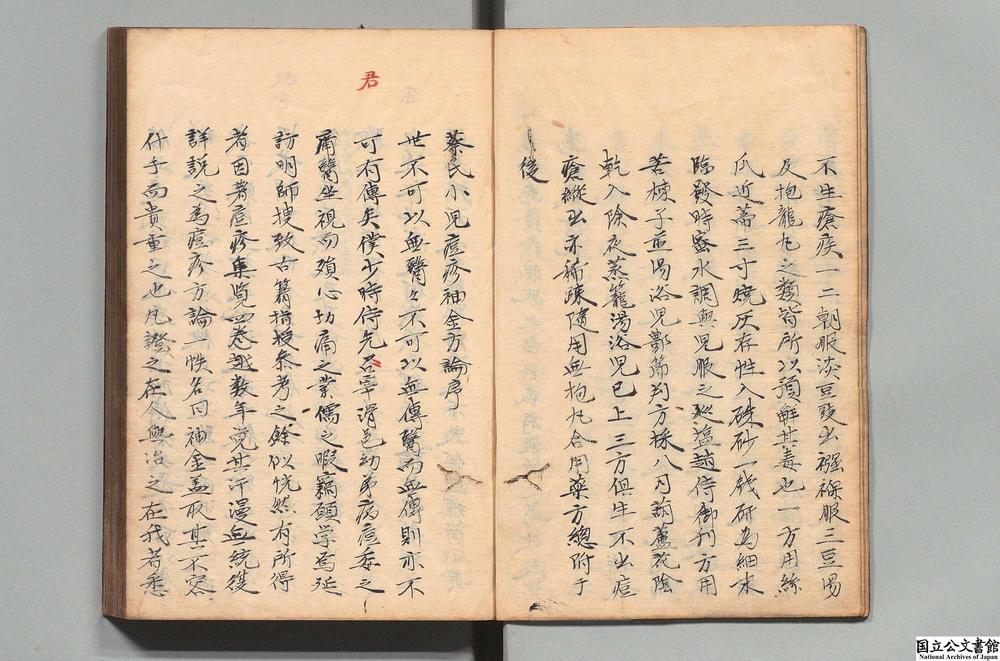 不生瘡疾一二朝服淡豆豉出襁褓服三豆湯
及抱龍丸之類皆所以預解其毒也一方用絲
瓜近蒂三寸燒灰存性入硃砂一錢研為細末
臨發時蜜水調與兒服之鹽趙侍御刊方用
苦楝子煎湯浴兒鄭節判方採八月葫蘆花陰
乾入除夜蒸籠湯浴兒已上三方俱生不出痘
瘡縱出亦稀踈隨用無抱丸合用藥方總附于
後
君
蔡氏小兒痘疹袖金方論序
世不可以無醫々不可以無傳醫而無傳則亦不
可有傳矣僕少時侍先君宰滑邑幼弟病痘委之
庸醫坐視而殞心切痛之業儒之暇竊願学焉延
訪明師搜致古籍指授參考之餘似恍然有所得
者因著痘疹集覧四卷越数年覚其汗漫無統復
詳説之為痘疹方論一帙名曰袖金盖取其不容
什手而貴重之也凡證之在人與治之在我者悉
国立公文書館
National Archives of Japan